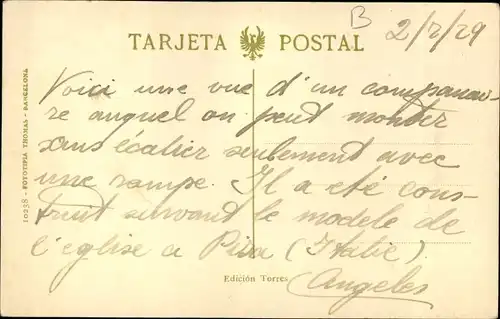 B
2/7/29
TARJETA POSTAL
Voici une vue d'un companai-
re auquel on peut monter
sans écalier seulement avec
une rampe. Il a eté cons-
truit suivant le modele de
l'eglise a Pisa (Italie).
Angeles
Edición Torres
10238 - FOTOTIPIA THOMAS - BARCELONA